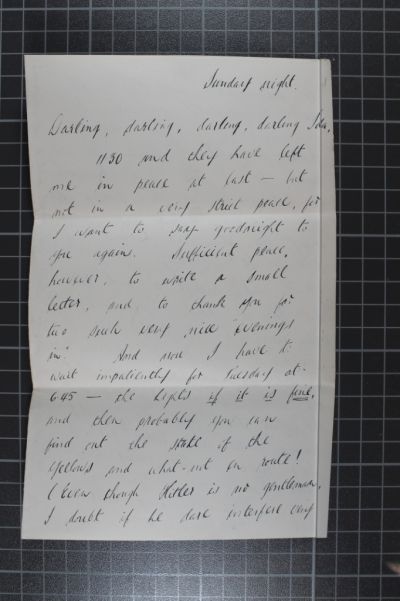 Sunday night.
Darling, darling, darling, darling
11.30 and they have left
me in peace at last — but
not in a very strict peace, for
I want to say goodnight to
you again. Sufficient peace,
however, to write a small
letter, and to thank you for
two such very nice evenings
in. And now I have to
wait impatiently for Tuesday at
6.45 — the if it is fine,
and then probably you can
find out the state of the
yellows and what-not en route!
(Even though Hitler is no gentleman,
I doubt if he dare interfere